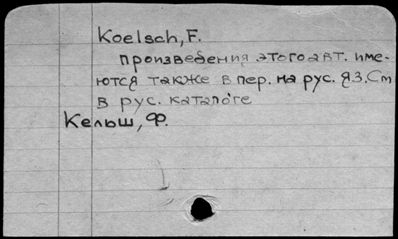 Koelsch, F.
произведения этого авт. име-
ются также в пер. на рус. яз. См
в рус. каталоге
Кельш, Ф.